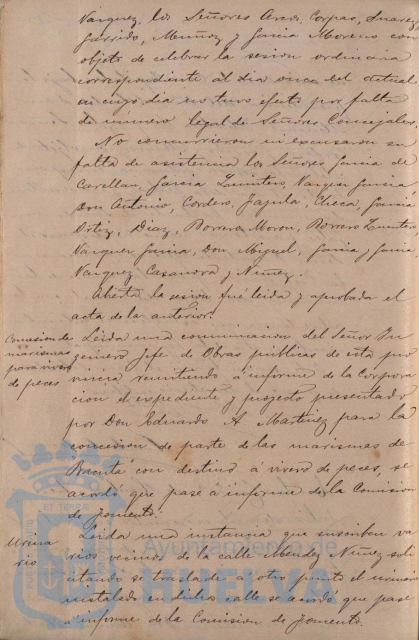 Vazquez, los Señores Arcos, Corpas, Suarez,
Garrido, Muñoz y Garcia Moreno con
objeto de celebrar la sesion ordinaria
correspondiente al dia once del actual
en cuyo dia no tuvo efecto por falta
de numero legal de Señores Concejales.
No concurrieron ni excusaron su
falta de asistencia los Señores Garcia de
Garcia Quintero, Vazquez Garcia
Don Antonio, Cordero, Checa, Garcia
Ortiz, Diaz, Borrero Moron, Borrero Quintero
Vazquez Garcia, Don Miguel, Garcia y Garcia
Vazquez Casanova y Nuñez.
Abierta la sesion fué leida y aprobada el
acta de la anterior.
Concesion de
marismas
para vivero
de peces
Leida una comunicacion del Señor In
geniero Jefe de Obras públicas de esta pro
vincia remitiendo á informe de la Corpora
cion el expediente y proyecto presentado
por Don Eduardo A. Martinez para la
concesion de parte de las marismas de
con destino á vivero de peces, se
acordó que pase á informe de la Comision
de fomento.
Urina
rio
Leida una instancia que suscriben va
rios vecinos de la calle Mendez Nuñez soli
citando se traslade á otro punto el urinario
instalado en dicha calle se acordó que pase
á informe de la Comision de fomento.
Ayuntamiento de
HUELVA